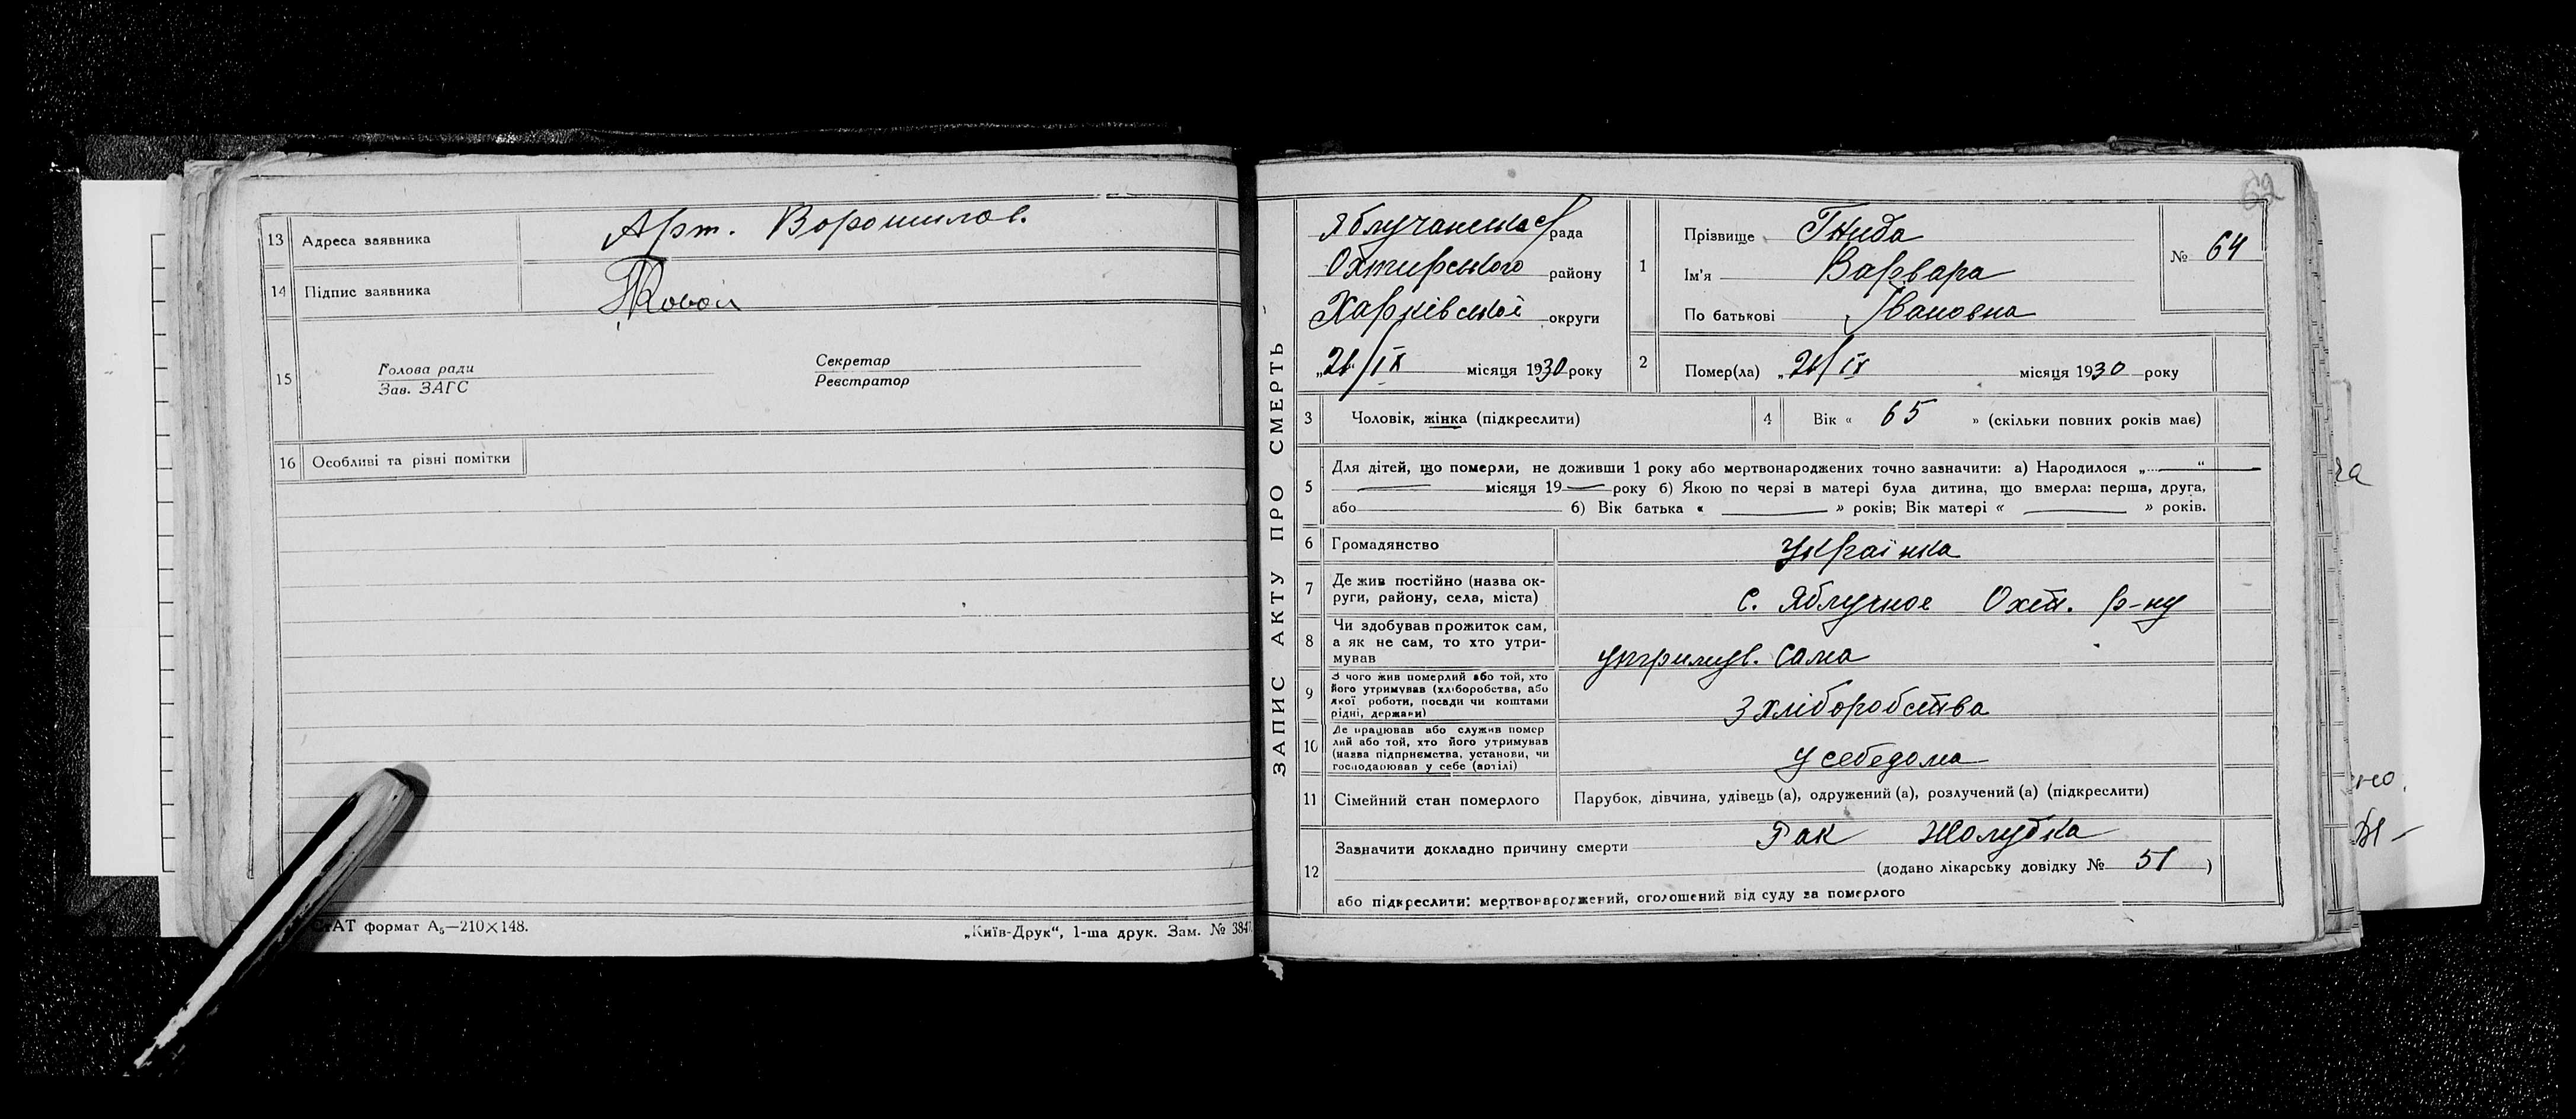 13 Адреса заявника Арт. Ворошилов.
14 Підпис заявника
15 Голова ради
Зав. ЗАГС
Секретар
Реєстратор
16 Особливі та різні помітки
АТ формат А₅—210×148.
„Київ-Друк“, 1-ша друк. Зам. № 384
62
ЗАПИС АКТУ ПРО СМЕРТЬ
Яблучанська рада
Охтирського району
Харківської округи
місяця 1930 року
1 Прізвище Гниба
Ім'я Варвара
По батькові Івановна
№ 64
2 Помер(ла) місяця 1930 року
3 Чоловік, жінка (підкреслити)
4 Вік « 65 » (скільки повних років має)
5 Для дітей, що померли, не доживши 1 року або мертвонароджених точно зазначити: а) Народилося „ — “
— місяця 19 — року б) Якою по черзі в матері була дитина, що вмерла: перша, друга,
або — б) Вік батька « — » років; Вік матері « — » років.
6 Громадянство Українка
7 Де жив постійно (назва ок-
руги, району, села, міста) с. Яблучное Охт. р-ну
8 Чи здобував прожиток сам,
а як не сам, то хто утри-
мував утримув. сама
9 З чого жив померлий або той, хто
його утримував (хліборобства, або
якої роботи, посади чи коштами
рідні, держави) З хліборобства
10 Де працював або служив помер
лий або той, хто його утримував
(назва підприємства, установи, чи
господарював у себе (артілі) У себе дома
11 Сімейний стан померлого Парубок, дівчина, удівець (а), одружений (а), розлучений (а) (підкреслити)
12 Зазначити докладно причину смерти Рак Жолудка
(додано лікарську довідку № 51 )
або підкреслити: мертвонароджений, оголошений від суду за померлого